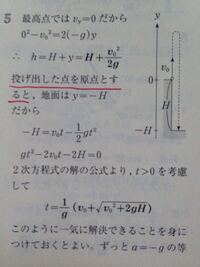 5 最高点では vy=0 だから
0²−v₀²=2(−g)y
∴ h=H+y=H+v₀²/2g
投げ出した点を原点とす
ると，地面は y=−H
だから
−H=v₀t−1/2gt²
gt²−2v₀t−2H=0
2次方程式の解の公式より，t>0 を考慮
して
t=1/g(v₀+√v₀²+2gH)
このように一気に解決できることを身に
つけておくとよい。ずっと a=−g の等
y
v₀
0
H
−H